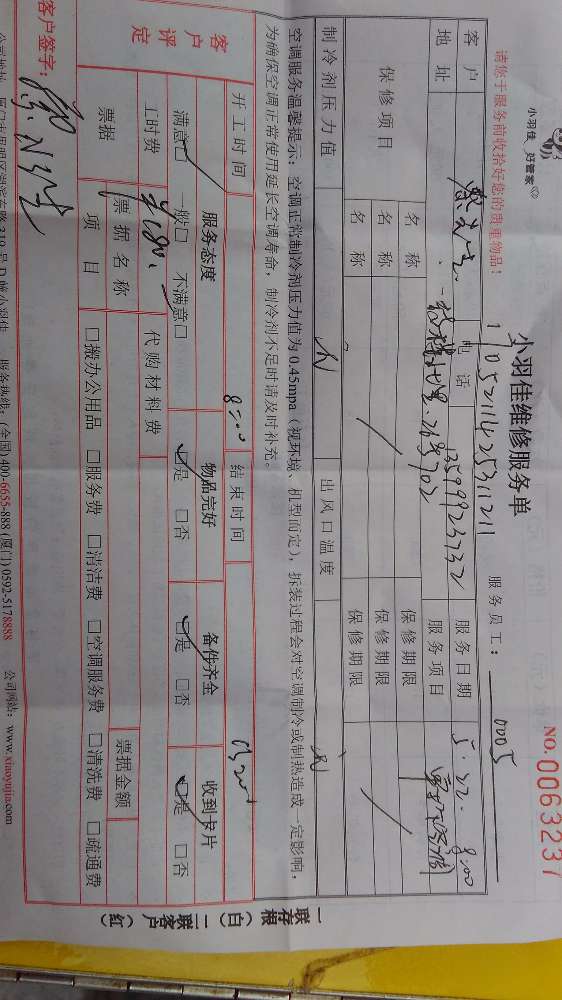 小羽佳 好管家
请您于服务前收拾好您的贵重物品!
小羽佳维修服务单
NO.0063237
服务员工: 0005
客户 电话 13599923732 服务日期 5.22. 8:00
地址 服务项目
保修项目 名称 保修期限
名称 保修期限
名称 保修期限
制冷剂压力值 出风口温度
空调服务温馨提示:空调正常制冷剂压力值为0.45mpa(视环境、机型而定),拆装过程会对空调制冷或制热造成一定影响,
为确保空调正常使用延长空调寿命,制冷剂不足时请及时补充。
开工时间 8:00 结束时间
客户评定 服务态度 物品完好 备件齐全 收到卡片
满意□ 一般□ 不满意□ □是 □否 □是 □否 □是 □否
工时费 代购材料费
票据 票据名称 票据金额
项目 □搬办公用品 □服务费 □清洁费 □空调服务费 □清洗费 □疏通费
客户签字:
服务热线:(全国)400-6655-888 (厦门)0592-5178888 公司网站:www.xiaoyujia.com
一联存根(白) 二联客户(红)